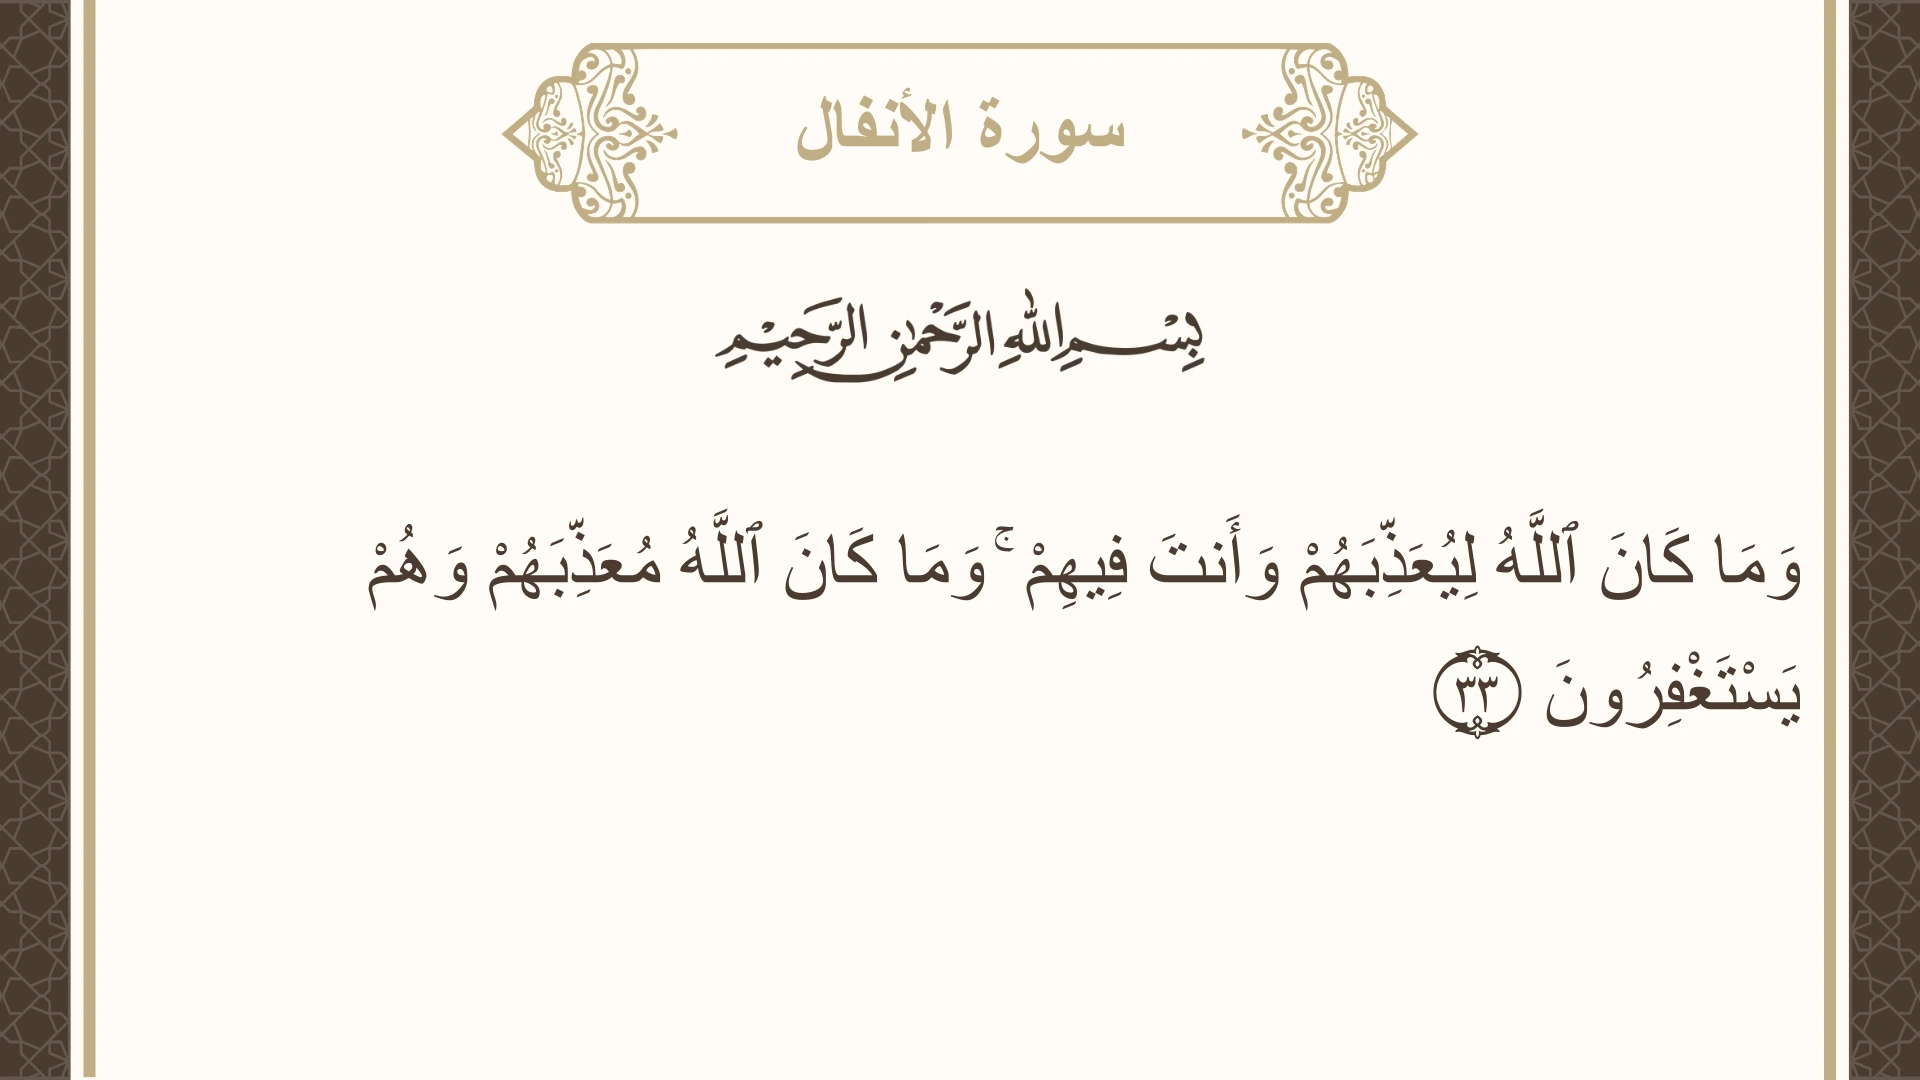 سورة الأنفال
بِسْمِ اللهِ الرَّحْمٰنِ الرَّحِيْمِ
وَمَا كَانَ ٱللَّهُ لِيُعَذِّبَهُمْ وَأَنتَ فِيهِمْ ۚ وَمَا كَانَ ٱللَّهُ مُعَذِّبَهُمْ وَهُمْ
يَسْتَغْفِرُونَ ٣٣